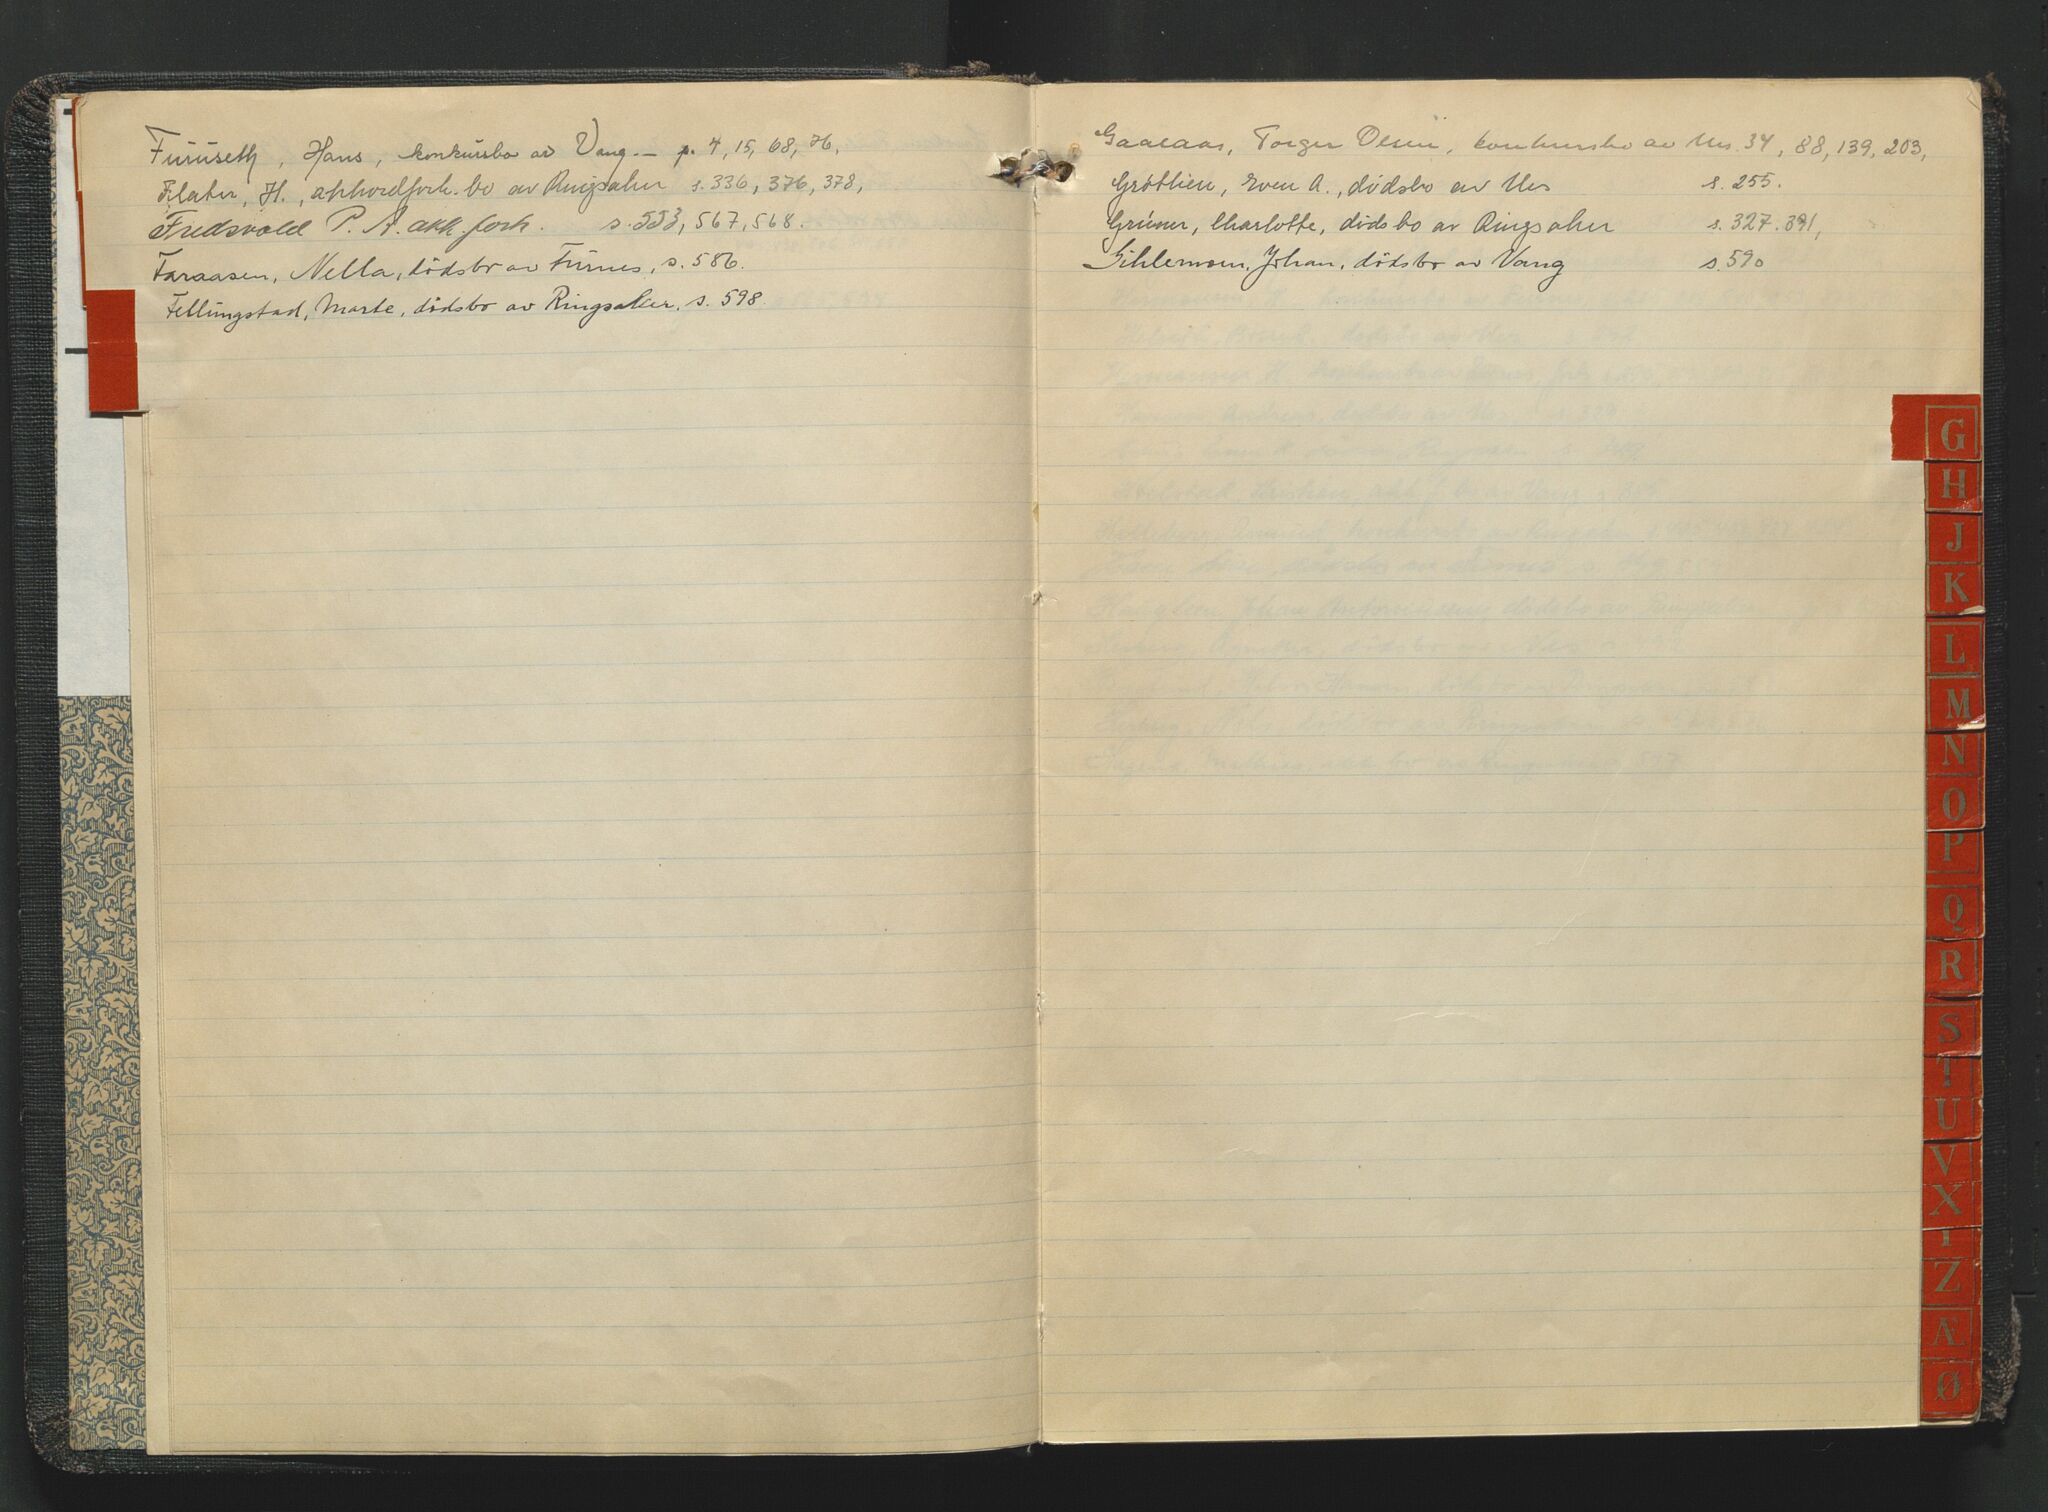 Furuseth, Hans, konkursbo av Vang. — p. 4, 15, 68, 76,
Flater, H., akkordfork. bo av Ringsaker s. 336, 376, 378,
Fredsvold P. A. akk. fork. s. 553, 567, 568.
Faraasen, Nella, dödsbo av Furnes, s. 586.
Fellungstad, Marte, dödsbo av Ringsaker, s. 598.
Gaaraas, Torger Olsen, konkursbo av Nes. 34, 88, 139, 203,
Gröttlien, Even A., dödsbo av Nes s. 255.
Grüner, Charlotte, dödsbo av Ringsaker s. 327. 391,
Gihlemoen, Johan, dödsbo av Vang s. 590
G
H
J
K
L
M
N
O
P
Q
R
S
T
U
V
X
Y
Z
Æ
Ø